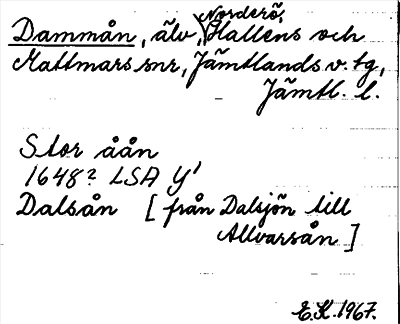 Dammån, älv, Norderö, Hallens och
Mattmars snr, Jämtlands v. tg,
Jämtl. l.
Stor åån
1648? LSA Y'
Dalsån [från Dalsjön till
Allvarsån]
E.K. 1967.